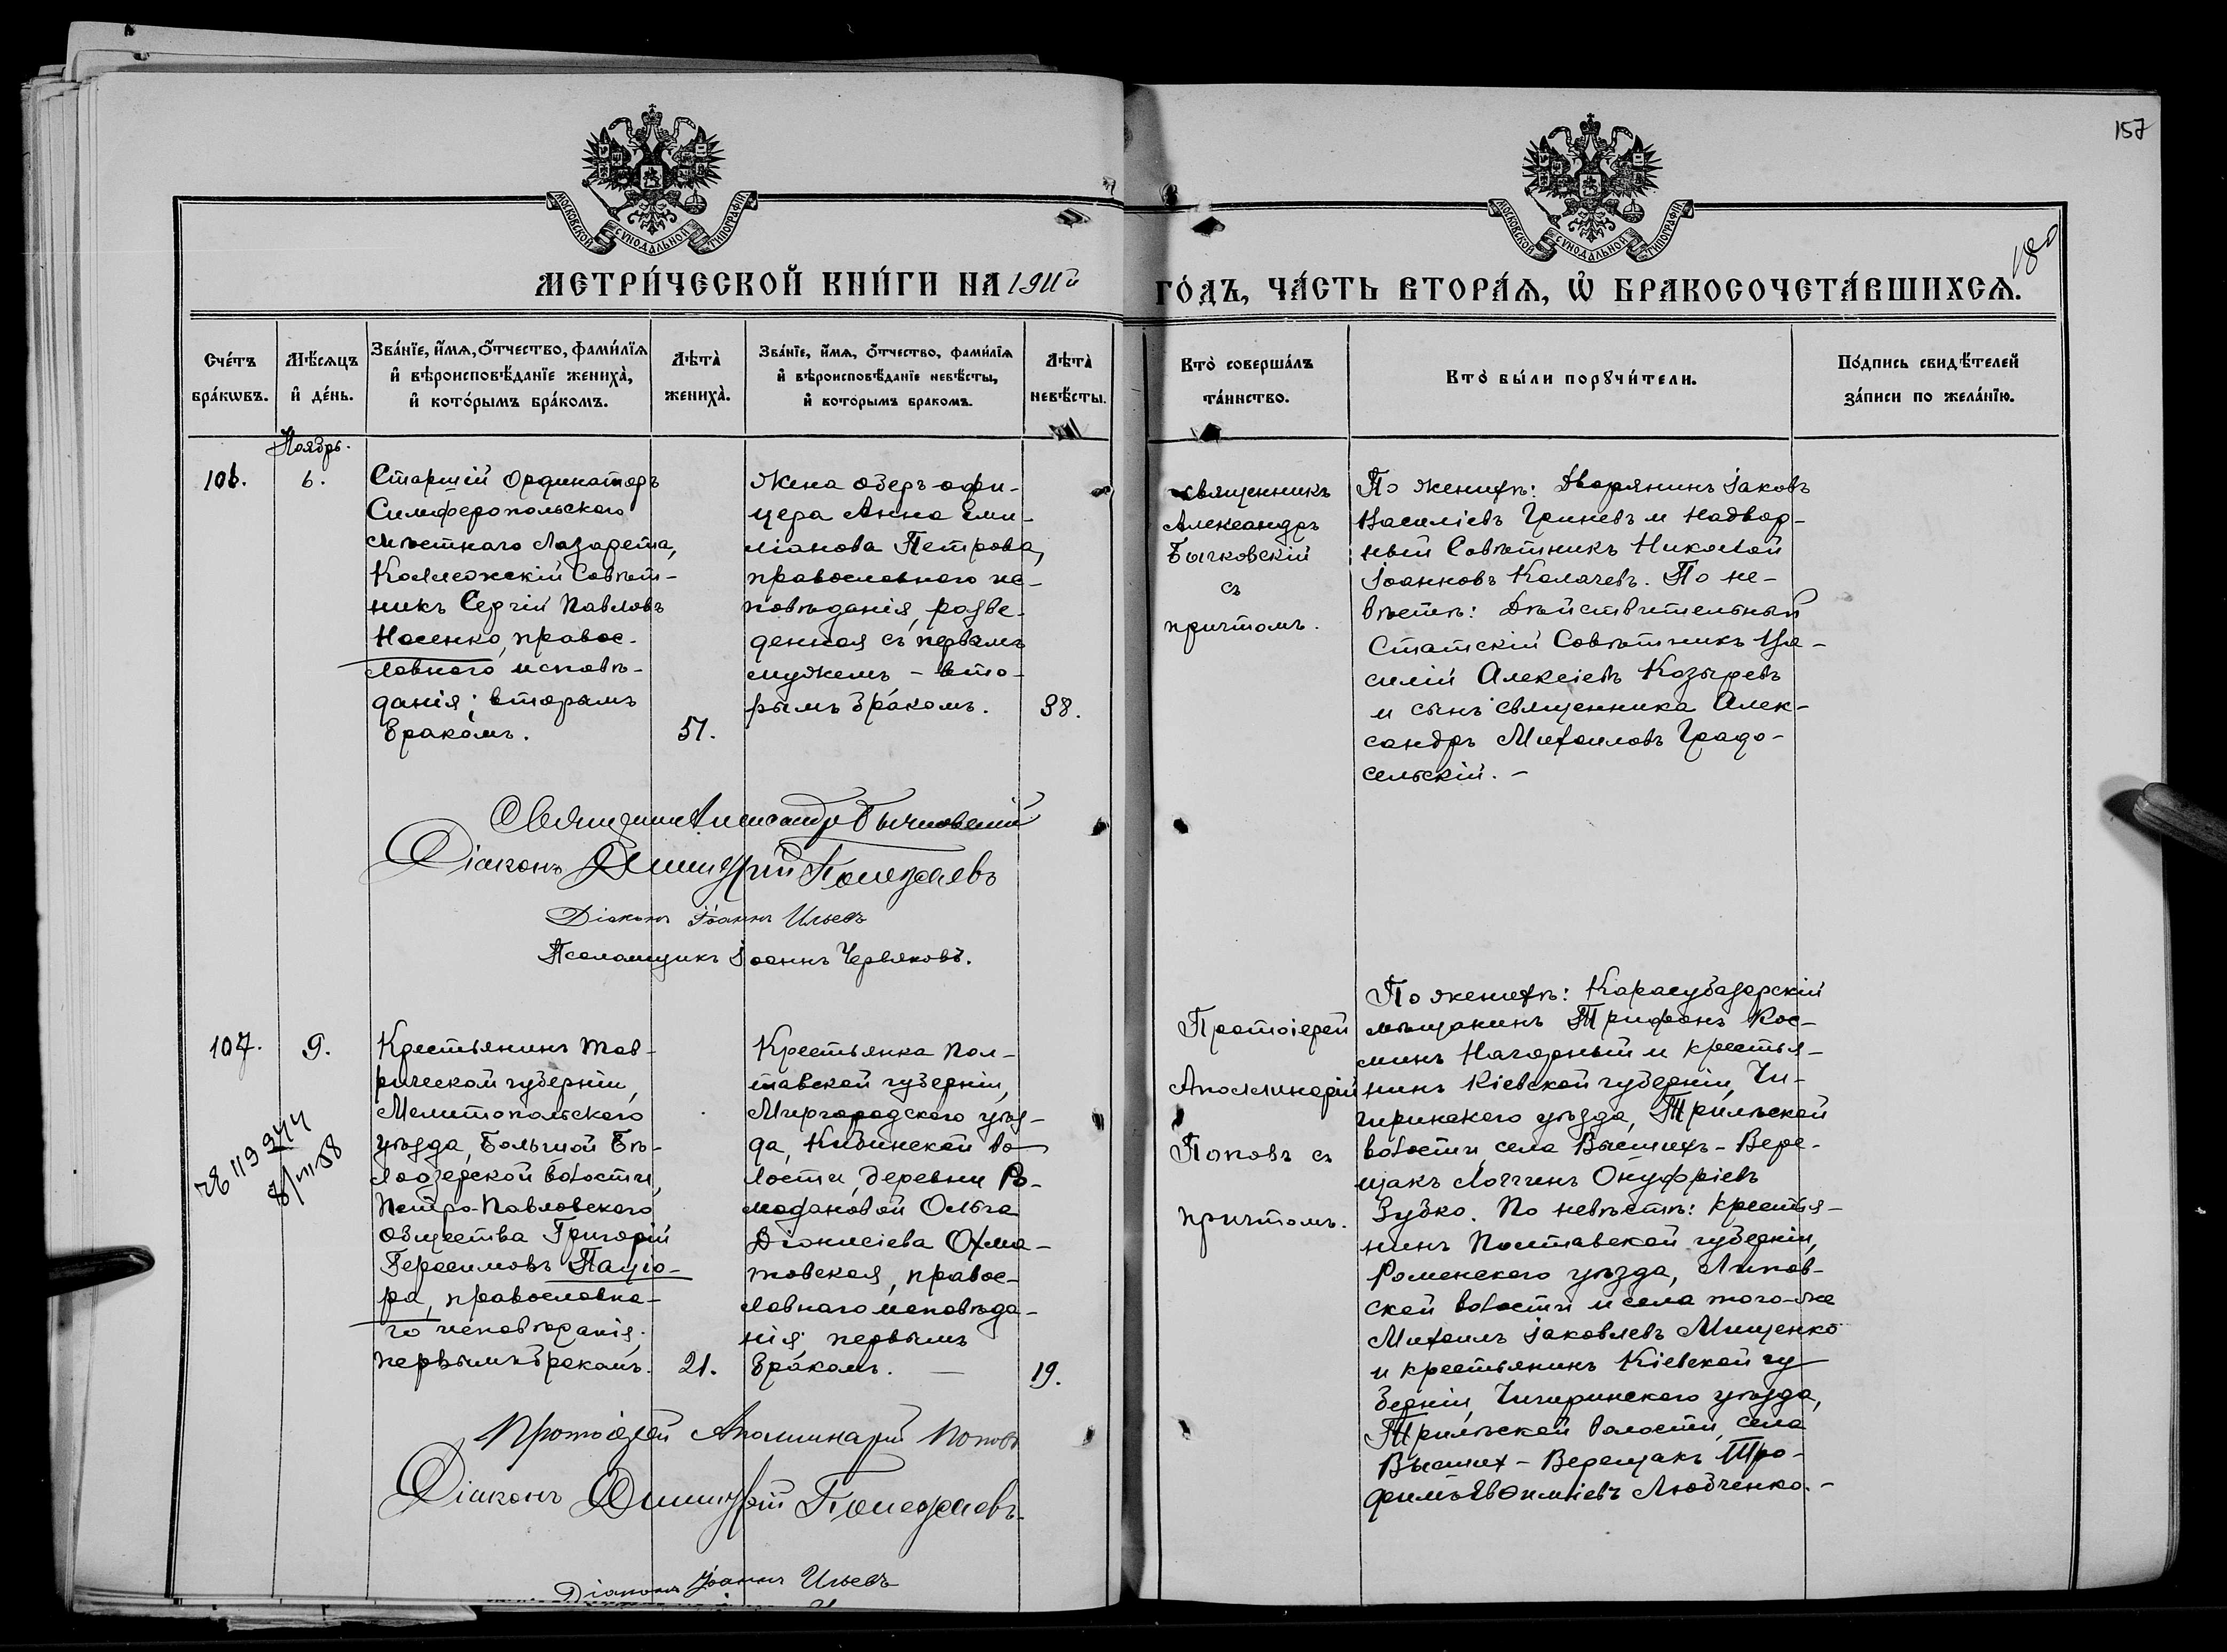 157
180
МОСКОВСКОЙ СѴНОДАЛЬНОЙ ТИПОГРАФІИ
МОСКОВСКОЙ СѴНОДАЛЬНОЙ ТИПОГРАФІИ
МЕТРИ́ЧЕСКОЙ КНИ́ГИ НА 1911й
ГО́ДЪ, ЧА́СТЬ ВТОРА́Ѧ, Ѿ БРАКОСОЧЕТА́ВШИХСѦ.
Сче́тъ
бра́кѡвъ.
Мѣ́сѧцъ
и҆ де́нь.
Зва́нїе, и҆́мѧ, ѻ҆́тчество, фами́лїѧ
и҆ вѣроисповѣ́данїе жениха̀,
и҆ кото́рымъ бра́комъ.
Лѣта̀
жениха̀.
Зва́нїе, и҆́мѧ, ѻ҆́тчество, фами́лїѧ
и҆ вѣроисповѣ́данїе невѣ́сты,
и҆ кото́рымъ бракомъ.
Лѣта̀
невѣ́сты.
Кто̀ соверша́лъ
та́инство.
Кто̀ бы́ли порꙋчи́тели.
По́дпись свидѣ́телей
за́писи по жела́нїю.
Ноябрь.
106.
6.
Старшій Ординаторъ
Симферопольскаго
мѣстнаго Лазарета,
Коллежскій Совѣт-
никъ Сергій Павловъ
Носенко, правос-
лавнаго исповѣ-
данія; вторымъ
бракомъ.
51.
Жена оберъ-офи-
цера Анна Еми-
ліанова Петрова,
православнаго ис-
повѣданія, разве-
денная съ первымъ
мужемъ - вто-
рымъ бракомъ.
38.
Священникъ
Александръ
Бычковскій
съ
причтомъ.
По женихѣ: Дворянинъ Іаковъ
Василіевъ Гриневъ и Надвор-
ный Совѣтникъ Николай
Іоанновъ Калачевъ. По не-
вѣстѣ: Дѣйствительный
Статскій Совѣтникъ Ва-
силій Алексіевъ Козыревъ
и сынъ священника Алек-
сандръ Михаиловъ Градо-
сельскій. -
Священникъ Александръ Бычковскій
Діаконъ Димитрій
Діаконъ Іоаннъ Ильевъ
Псаломщикъ Іоаннъ Червяковъ.
107.
9.
119344
8/III 58
Крестьянинъ Тав-
рической губерніи,
Мелитопольскаго
уѣзда, Большой Бѣ-
лоозерской волости,
Петро-Павловскаго
общества Григорій
Герасимовъ Паціо-
ра, православна-
го исповѣданія;
первымъ бракомъ.
21.
Крестьянка Пол-
тавской губерніи,
Миргородскаго уѣз-
да, Кибинской во-
лости, деревни Ро-
модановой Ольга
Діонисіева Охма-
товская, правос-
лавнаго исповѣда-
нія; первымъ
бракомъ. —
19.
Протоіерей
Аполлинарій
Поповъ съ
причтомъ.
По женихѣ: Карасубазарскій
мѣщанинъ Трифонъ Кос-
минъ Нагорный и крестья-
нинъ Кіевской губерніи, Чи-
гиринскаго уѣзда, Трилѣской
волости, села Высшихъ-Вере-
щакъ Логгинъ Онуфріевъ
Зубко. По невѣстѣ: крестья-
нинъ Полтавской губерніи,
Роменскаго уѣзда, Липов-
ской волости и села того-же
Михаилъ Іаковлевъ Мищенко
и крестьянинъ Кіевской гу-
берніи, Чигиринскаго уѣзда,
Трилѣской волости, села
Высших-Верещакъ Тро-
фимъ Евѳиміевъ Любченко. -
Протоіерей Аполлинарій Поповъ
Діаконъ Димитрій
Діаконъ Іоаннъ Ильевъ